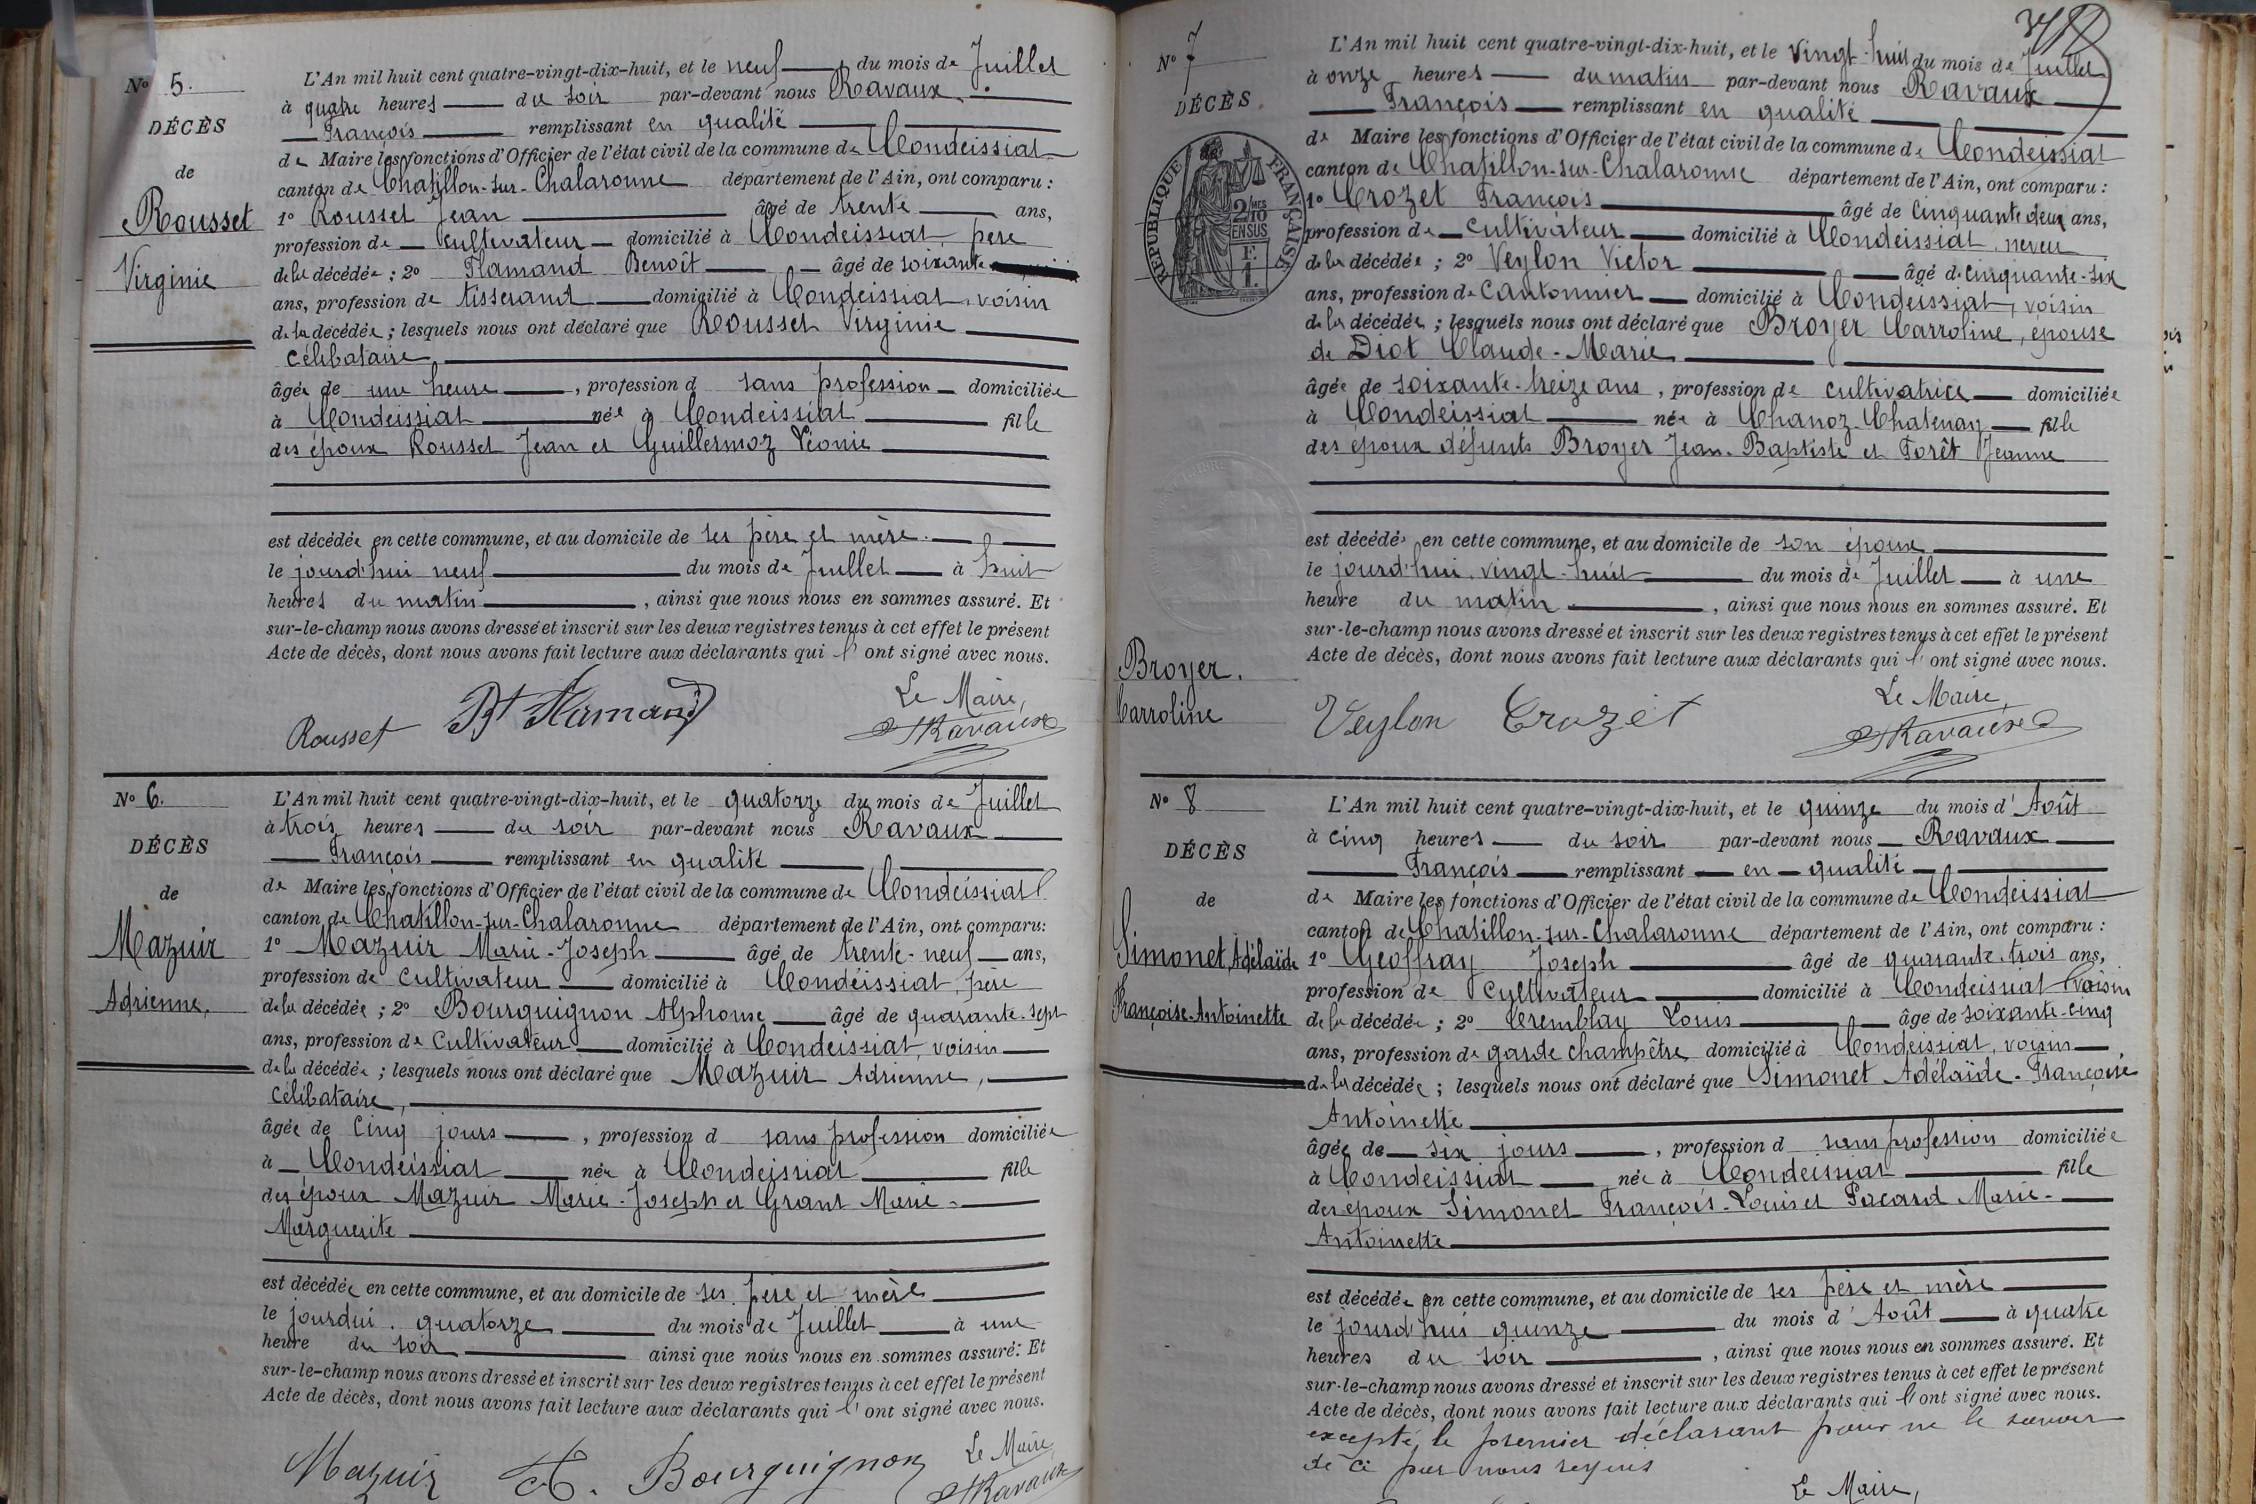 No 5.
DÉCÈS
de
Rousset
Virginie
L'An mil huit cent quatre-vingt-dix-huit, et le neuf du mois de Juillet
à quatre heures du soir par-devant nous Ravaux
François remplissant en qualité
de Maire les fonctions d'Officier de l'état civil de la commune de Condeissiat
canton de Chatillon-sur-Chalaronne département de l'Ain, ont comparu :
1o Rousset Jean âgé de trente ans,
profession de cultivateur domicilié à Condeissiat, père
de la décédée ; 2o Flamand Benoît âgé de soixante
ans, profession de tisserand domicilié à Condeissiat, voisin
de la décédée ; lesquels nous ont déclaré que Rousset Virginie
célibataire
âgée de une heure, profession d sans profession domiciliée
à Condeissiat née à Condeissiat fille
des époux Rousset Jean et Guillermoz Léonie
est décédée en cette commune, et au domicile de ses père et mère.
le jourd'hui neuf du mois de Juillet à huit
heures du matin, ainsi que nous nous en sommes assuré. Et
sur-le-champ nous avons dressé et inscrit sur les deux registres tenus à cet effet le présent
Acte de décès, dont nous avons fait lecture aux déclarants qui l'ont signé avec nous.
Le Maire,
Rousset Bt Flamand Ravaux
No 6.
DÉCÈS
de
Mazuir
Adrienne,
L'An mil huit cent quatre-vingt-dix-huit, et le quatorze du mois de Juillet
à trois heures du soir par-devant nous Ravaux
François remplissant en qualité
de Maire les fonctions d'Officier de l'état civil de la commune de Condeissiat
canton de Chatillon-sur-Chalaronne département de l'Ain, ont comparu :
1o Mazuir Marie-Joseph âgé de trente-neuf ans,
profession de cultivateur domicilié à Condeissiat, père
de la décédée ; 2o Bourguignon Alphonse âgé de quarante-sept
ans, profession de cultivateur domicilié à Condeissiat, voisin
de la décédée ; lesquels nous ont déclaré que Mazuir Adrienne,
célibataire,
âgée de cinq jours, profession d sans profession domiciliée
à Condeissiat née à Condeissiat fille
des époux Mazuir Marie-Joseph et Grant Marie-
Marguerite
est décédée en cette commune, et au domicile de ses père et mère
le jourdui quatorze du mois de Juillet à une
heure du soir ainsi que nous nous en sommes assuré. Et
sur-le-champ nous avons dressé et inscrit sur les deux registres tenus à cet effet le présent
Acte de décès, dont nous avons fait lecture aux déclarants qui l'ont signé avec nous.
Le Maire
Mazuir A. Bourguignon Ravaux
No 7
DÉCÈS
de
RÉPUBLIQUE FRANÇAISE
2/10 MES
EN SUS
F.
1.
Broyer.
Carroline
L'An mil huit cent quatre-vingt-dix-huit, et le vingt-huit du mois de Juillet
à onze heures du matin par-devant nous Ravaux
François remplissant en qualité
de Maire les fonctions d'Officier de l'état civil de la commune de Condeissiat
canton de Chatillon-sur-Chalaronne département de l'Ain, ont comparu :
1o Crozet François âgé de cinquante deux ans,
profession de cultivateur domicilié à Condeissiat, neveu
de la décédée ; 2o Veylon Victor âgé de cinquante-six
ans, profession de cantonnier domicilié à Condeissiat, voisin
de la décédée ; lesquels nous ont déclaré que Broyer Carroline, épouse
de Diot Claude-Marie
âgée de soixante-treize ans, profession de cultivatrice domiciliée
à Condeissiat née à Chanoz-Chatenay fille
des époux défunts Broyer Jean-Baptiste et Forêt Jeanne
est décédée en cette commune, et au domicile de son époux
le jourd'hui vingt-huit du mois de Juillet à une
heure du matin, ainsi que nous nous en sommes assuré. Et
sur-le-champ nous avons dressé et inscrit sur les deux registres tenus à cet effet le présent
Acte de décès, dont nous avons fait lecture aux déclarants qui l'ont signé avec nous.
Le Maire,
Veylon Crozet Ravaux
No 8
DÉCÈS
de
Simonet Adélaïde
Françoise-Antoinette
L'An mil huit cent quatre-vingt-dix-huit, et le quinze du mois d'Août
à cinq heures du soir par-devant nous Ravaux
François remplissant en qualité
de Maire les fonctions d'Officier de l'état civil de la commune de Condeissiat
canton de Chatillon-sur-Chalaronne département de l'Ain, ont comparu :
1o Geoffray Joseph âgé de quarante-trois ans,
profession de cultivateur domicilié à Condeissiat voisin
de la décédée ; 2o Tremblay Louis âge de soixante-cinq
ans, profession de garde champêtre domicilié à Condeissiat, voisin
de la décédée ; lesquels nous ont déclaré que Simonet Adélaïde-Françoise
Antoinette
âgée de six jours, profession d sans profession domiciliée
à Condeissiat née à Condeissiat fille
des époux Simonet François-Louis et Pacard Marie-
Antoinette
est décédée en cette commune, et au domicile de ses père et mère
le jourd'hui quinze du mois d'Août à quatre
heures du soir, ainsi que nous nous en sommes assuré. Et
sur-le-champ nous avons dressé et inscrit sur les deux registres tenus à cet effet le présent
Acte de décès, dont nous avons fait lecture aux déclarants qui l'ont signé avec nous.
excepté le premier déclarant pour ne le savoir
de ce par nous requis
Le Maire,